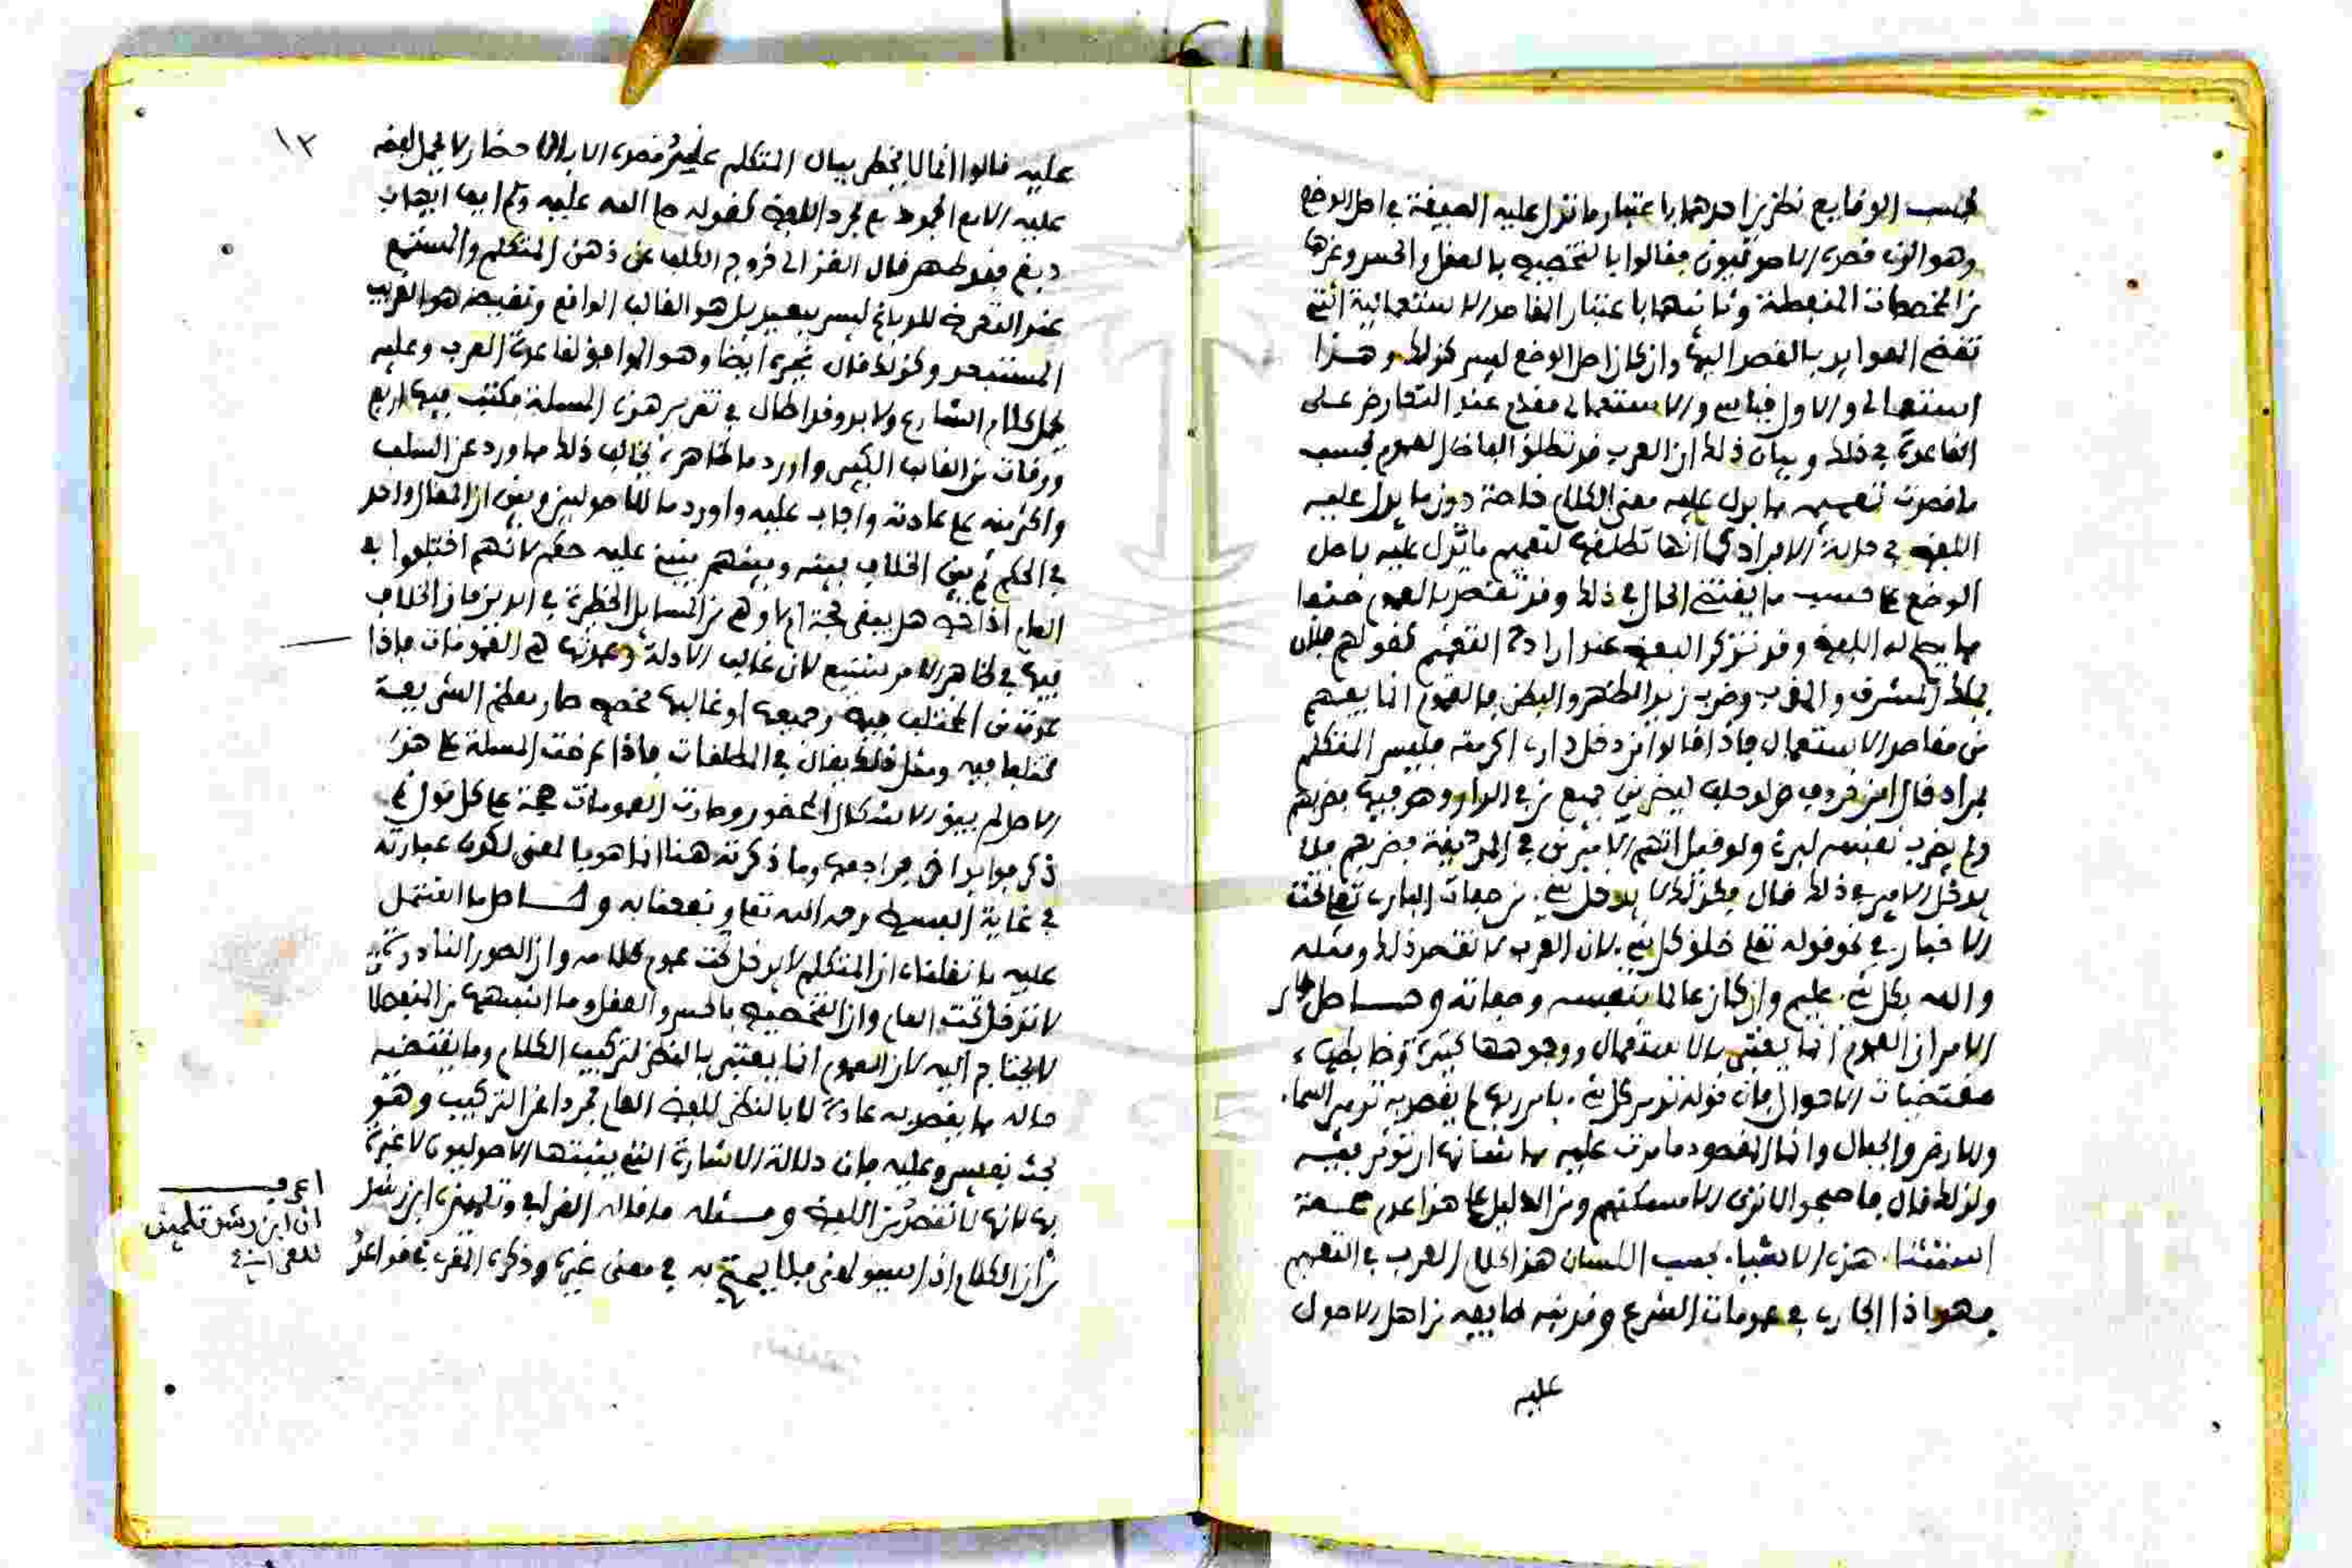 بحسب الوقايع نظرين احدهما باعتبار ما تدل عليه الصيغة في اصل الوضع
وهو الذي قصده الاصوليون فقالوا بالتخصيص بالعقل والحس وغيرها
من المخصصات المنفصلة وثانيهما باعتبار المقاصد الاستعمالية التي
تقضي العوايد بالقصد اليها وان كان اصل الوضع ليس كذلك وهذا
استعمالي والاول قياسي والاستعمالي مقدم عند التعارض على
القاعدة في ذلك وبيان ذلك ان العرب قد تطلق الفاظ العموم بحسب
ما قصدت تعميمه مما يدل عليه معنى الكلام خاصة دون ما يدل عليه
اللفظ في حالة الافراد كما انها تطلقها لتعميم ما تدل عليه باصل
الوضع على حسب ما يقتضي الحال في ذلك وقد تقتصر بالعموم
مما يصلح له اللفظ وقد تذكر البعض عند ارادة التعميم كقولهم فلان
يملك المشرق والمغرب وضرب زيد الظهر والبطن فالعموم انما يفهم
من مقاصد الاستعمال فاذا قالوا من دخل داري اكرمته فليس المتكلم
بمراد قال ابن خروف ولو حلف ليضربن جميع من في الدار وهو فيها فضربهم
ولم يضرب نفسه لبر ولو قيل اتهم الامير من في المدينة فضربهم فلا
يدخل الامير في ذلك قال فكذلك لا يدخل شيء من صفات الباري تعالى تحت
الاخبار في نحو قوله تعالى خلق كل شيء لان العرب لا تقصد ذلك ومثله
والله بكل شيء عليم وان كان عالما بنفسه وصفاته وحاصل
الامر ان العموم انما يعتبر بالاستعمال ووجوهها كثيرة وضابطها
مقتضيات الاحوال فان قوله تدمر كل شيء بامر ربها لم يقصد به تدمير السماء
والارض والجبال وانما المقصود ما مرت عليه مما شانها ان توثر فيه
ولذلك قال فاصبحوا لا ترى الا مسكنهم ومن الدليل على هذا عدم صحة
استثناء هذه الاشياء بحسب اللسان هذا كلام العرب في التعميم
فهو اذا الجاري في عمومات الشرع وفد نبه طايفة من اهل الاصول
عليه
١٣
عليه فقالوا انما لا يخطر ببال المتكلم قصده الا بالاحضار لا يحمل لفظه
عليه الا مع الجمود على مجرد اللفظ كقوله صلى الله عليه وسلم ايما اهاب
دبغ فقد طهر قال الغزالي خروج الكلب عن ذهن المتكلم والمستمع
عند التعرض للدباغ ليس ببعيد بل هو الغالب الواقع ونقيضه هو الغريب
المستبعد وكذلك قال غيره ايضا وهو الموافق لقاعدة العرب وعليه
يحمل كلام الشارع ولابد وقد اطال في تقرير هذه المسلة فكتب فيها اربع
ورقات من القالب الكبير واورد ما ظاهره يخالف ذلك مما ورد عن السلف
واكثر منه على عادته واجاب عليه واورد ما للاصوليين وبين ان المقال واحد
في الحكم ثم بين الخلاف بينه وبينهم ينبني عليه حكم لانهم اختلفوا في
العام اذا خص هل يبقى حجة ام لا وهي من المسايل الخطيرة في الدين فان الخلاف
فيها في ظاهر الامر شنيع لان غالب الادلة وعمدتها هي العمومات فاذا
عدت من المختلف فيه وجميعها او غالبها مخصص صار معظم الشريعة
مختلفا فيه ومثل ذلك يقال في المطلقات فاذا عرضت المسلة على هذا
الاصل لم يبق الاشكال المحضور وصارت العمومات حجة على كل قول ثم
ذكر فوايد اخر فراجعها وما ذكرته هنا انما هو بالمعنى لكون عبارته
في غاية البسط رحمه الله تعالى ونفعنا به وحاصل ما اشتمل
عليه ما نقلناه ان المتكلم لا يدخل تحت عموم كلامه وان الصور النادرة
لا تدخل تحت العام وان التخصيص بالحس والعقل وما اشبههما من المنفصلات
لا يحتاج اليه لان العموم انما يعتبر بالنظر لتركيب الكلام وما يقتضيه
حاله مما يقصد به عادة لا بالنظر للفظ العام مجردا عن التركيب وهو
بحث نفيس وعليه فان دلالة الاشارة التي يثبتها الاصوليون لا عبرة
بها لانها لا تقصد من اللفظ ومسئله ما قاله القرافي وتلميذه ابن رشد
من ان الكلام اذا سيق لمعنى فلا يحتج به في معنى غيره وذكره المقري في قواعده
اعرف
ان ابن رشد تلميذ
للقرافي